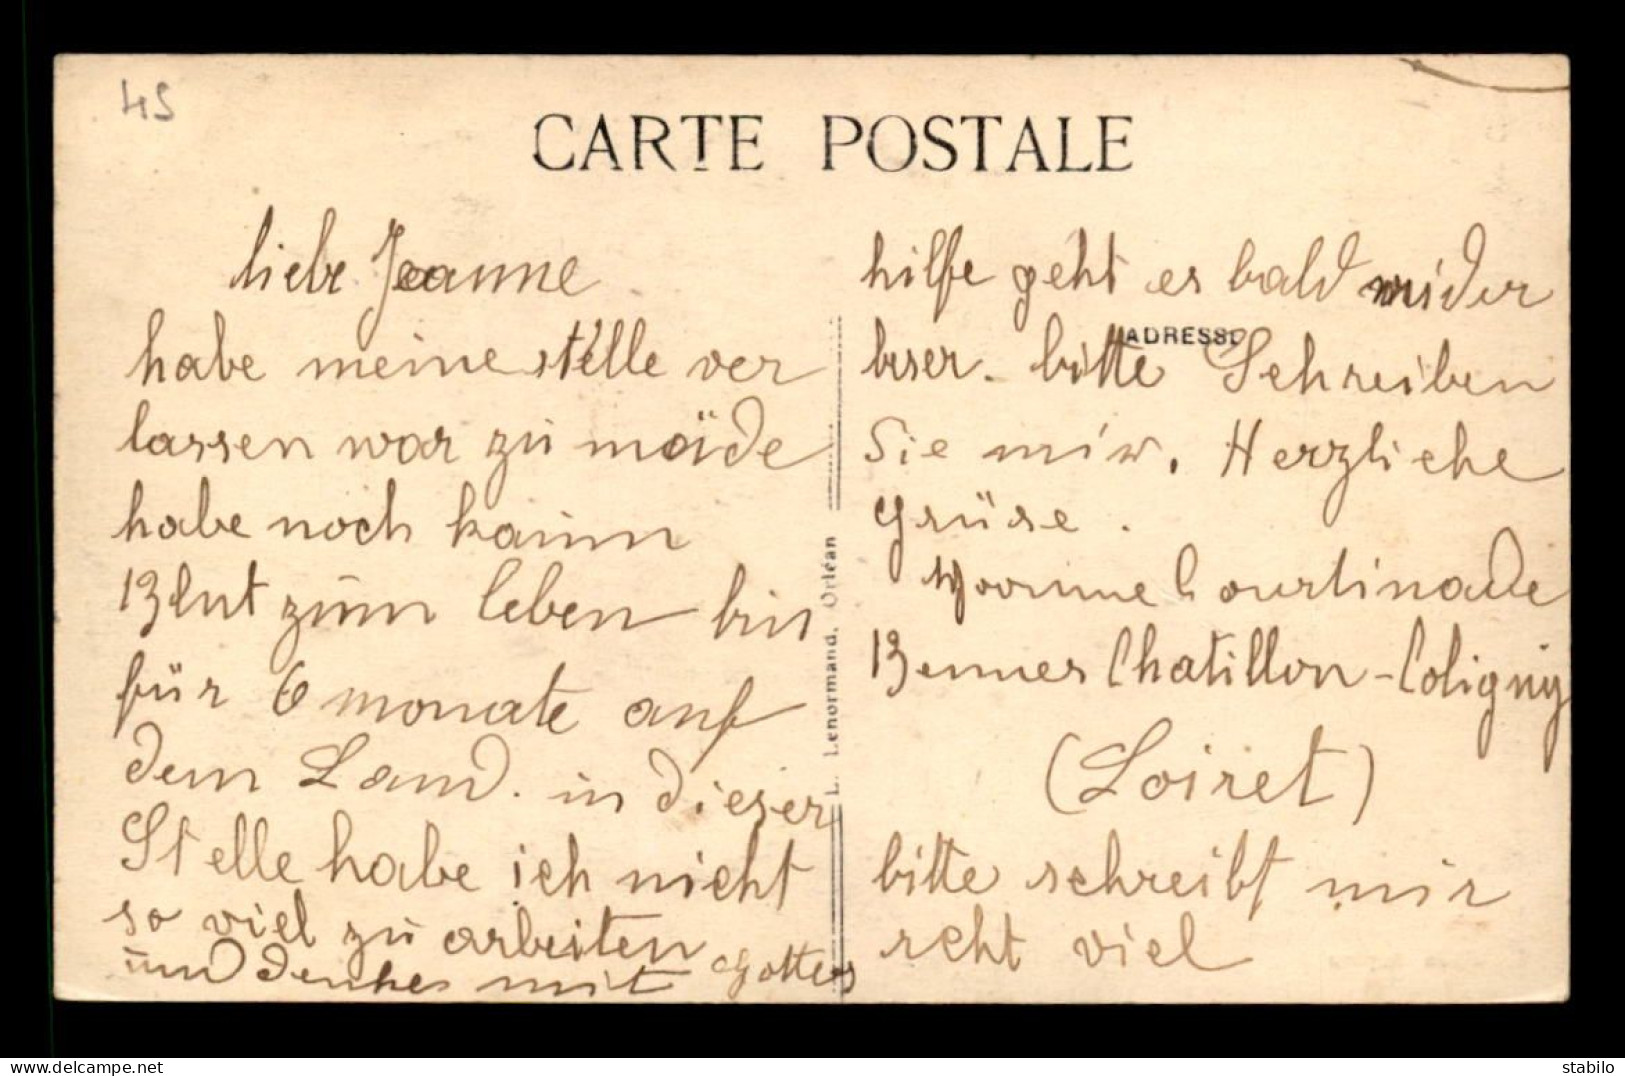 45
CARTE POSTALE
liebe Jeanne
habe meine stelle ver
lassen war zu müde
habe noch kaum
Blut zum leben bin
für 6 monate auf
dem Land. in dieser
Stelle habe ich nicht
so viel zu arbeiten
und denke mit Gottes
L. Lenormand, Orléan
ADRESSE
hilfe geht es bald wider
beser. bitte Schreiben
Sie mir. Herzliche
Grüse.
Courtinade
Chatillon-Coligny
(Loiret)
bitte schreibt mir
reht viel
stabilo
www.delcampe.net